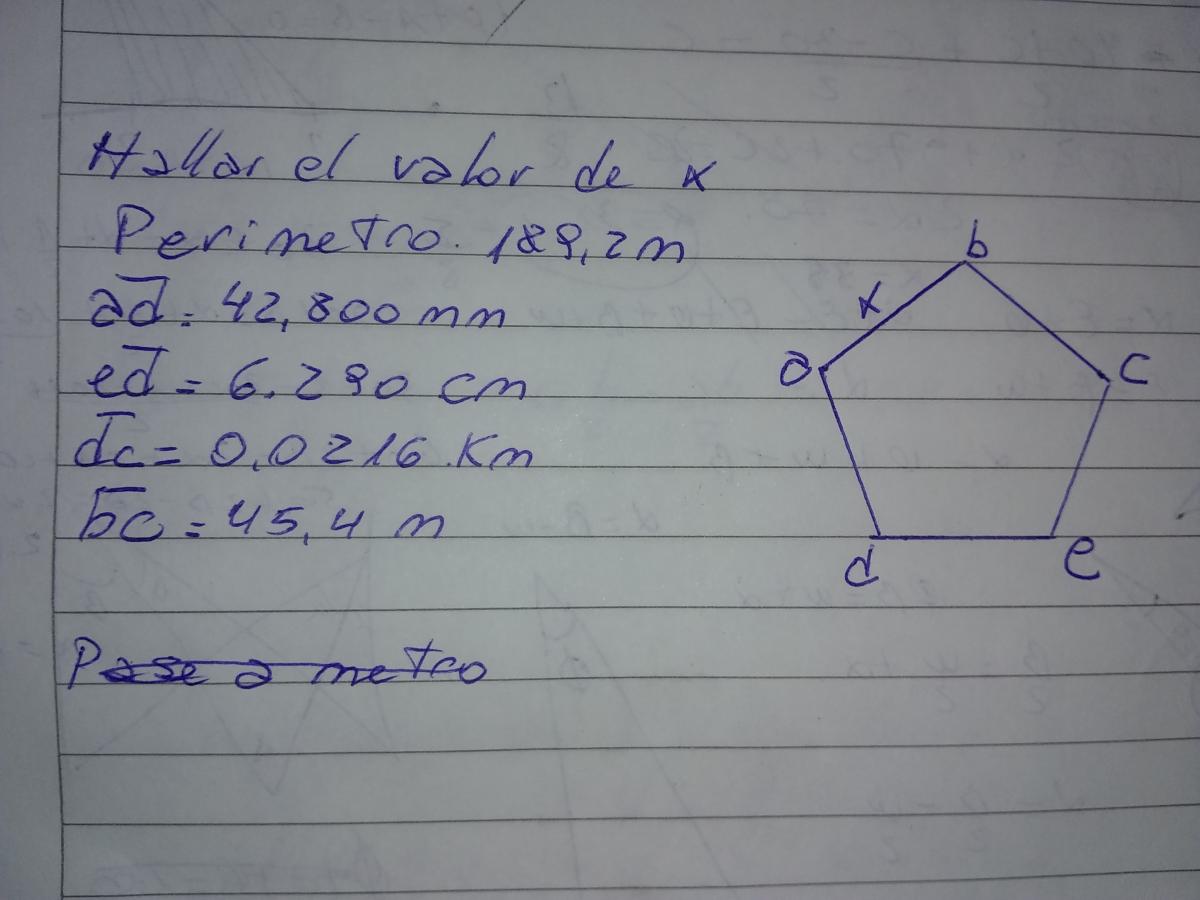 Hallar el valor de x
Perimetro. 189,2m
ad = 42,800 mm
ed = 6.290 cm
dc = 0,0216 Km
bc = 45,4 m
Pase a metro
b
x
a
c
d
e